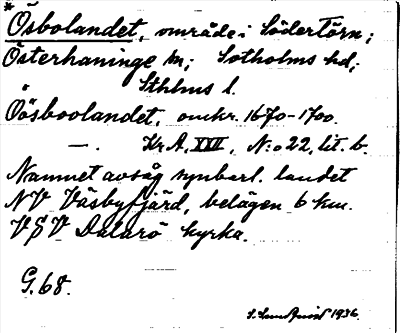 * Ösbolandet, område i Södertörn;
Österhaninge sn; Sotholms hd;
Sthlms l.
Oösboolandet, omkr. 1670-1700.
—. Kr A, XXII, N:o 22, lit. b.
Namnet avsåg synbarl. landet
NV Väsbyfjärd, belägen 6 km.
VSV Dalarö kyrka.
G. 68.
S. Sundquist 1936.